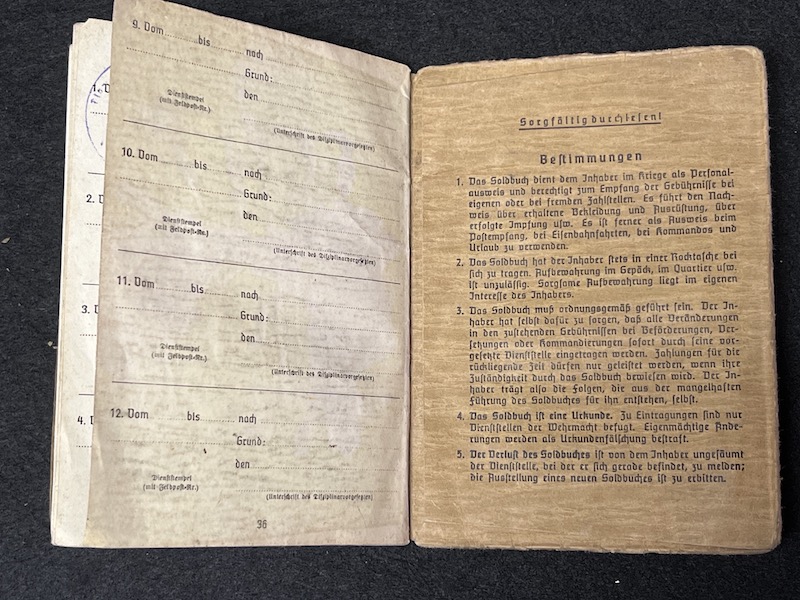 9. Vom bis nach
Grund:
den
Dienststempel
(mit Feldpost-Nr.)
(Unterschrift des Disziplinarvorgesetzten)
10. Vom bis nach
Grund:
den
Dienststempel
(mit Feldpost-Nr.)
(Unterschrift des Disziplinarvorgesetzten)
11. Vom bis nach
Grund:
den
Dienststempel
(mit Feldpost-Nr.)
(Unterschrift des Disziplinarvorgesetzten)
12. Vom bis nach
Grund:
den
Dienststempel
(mit Feldpost-Nr.)
(Unterschrift des Disziplinarvorgesetzten)
36
1.
2.
3.
4.
Sorgfältig durchlesen!
Bestimmungen
1. Das Soldbuch dient dem Inhaber im Kriege als Personal-
ausweis und berechtigt zum Empfang der Gebührnisse bei
eigenen oder bei fremden Zahlstellen. Es führt den Nach-
weis über erhaltene Bekleidung und Ausrüstung, über
erfolgte Impfung usw. Es ist ferner als Ausweis beim
Postempfang, bei Eisenbahnfahrten, bei Kommandos und
Urlaub zu verwenden.
2. Das Soldbuch hat der Inhaber stets in einer Rocktasche bei
sich zu tragen. Aufbewahrung im Gepäck, im Quartier usw.
ist unzulässig. Sorgsame Aufbewahrung liegt im eigenen
Interesse des Inhabers.
3. Das Soldbuch muß ordnungsgemäß geführt sein. Der In-
haber hat selbst dafür zu sorgen, daß alle Veränderungen
in den zustehenden Gebührnissen bei Beförderungen, Ver-
setzungen oder Kommandierungen sofort durch seine vor-
gesetzte Dienststelle eingetragen werden. Zahlungen für die
rückliegende Zeit dürfen nur geleistet werden, wenn ihre
Zuständigkeit durch das Soldbuch bewiesen wird. Der In-
haber trägt also die Folgen, die aus der mangelhaften
Führung des Soldbuches für ihn entstehen, selbst.
4. Das Soldbuch ist eine Urkunde. Zu Eintragungen sind nur
Dienststellen der Wehrmacht befugt. Eigenmächtige Ände-
rungen werden als Urkundenfälschung bestraft.
5. Der Verlust des Soldbuches ist von dem Inhaber ungesäumt
der Dienststelle, bei der er sich gerade befindet, zu melden;
die Ausstellung eines neuen Soldbuches ist zu erbitten.